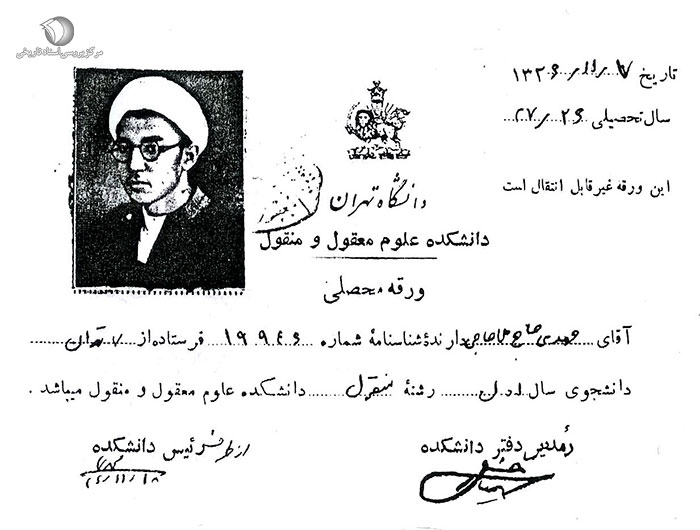 مرکز بررسی اسناد تاریخی
تاریخ ۱۳۲۶/۱۱/۷
سال تحصیلی ۲۷-۲۶
این ورقه غیر قابل انتقال است
دانشگاه تهران
دانشکده علوم معقول و منقول
ورقه محصلی
آقای مهدی حاج دارندهٔ شناسنامهٔ شماره ۱۹۹۴۶ فرستاده از تهران
دانشجوی سال اول رشتهٔ منقول دانشکده علوم معقول و منقول میباشد .
مدیر دفتر دانشکده
از طرف رئیس دانشکده